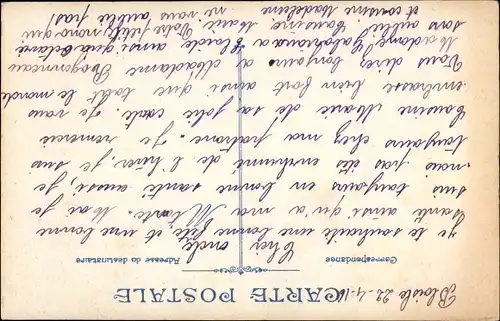 CARTE POSTALE
Correspondance
Adresse du destinataire
22-4-
Chèr oncle
Je te souhaite une bonne fête, et une bonne
santé ainsi qu'a ma Mtante. Moi je
suis toujours en bonne santé aussi, je
nais pas étés enrhumé de l'hiver, je suis
toujours chez ma patrone. Je remercie
Cousine Marie de sa jolie carte. Je vous
embrasse bien fort ainsi que toût le monde
Vous direz bonjours à Madamme
Madame a ainsi qu'a Octavie
sans oublié Cousine Marie. Votre petite nono qui
et cousine Madeleine ne vous oublie pas!